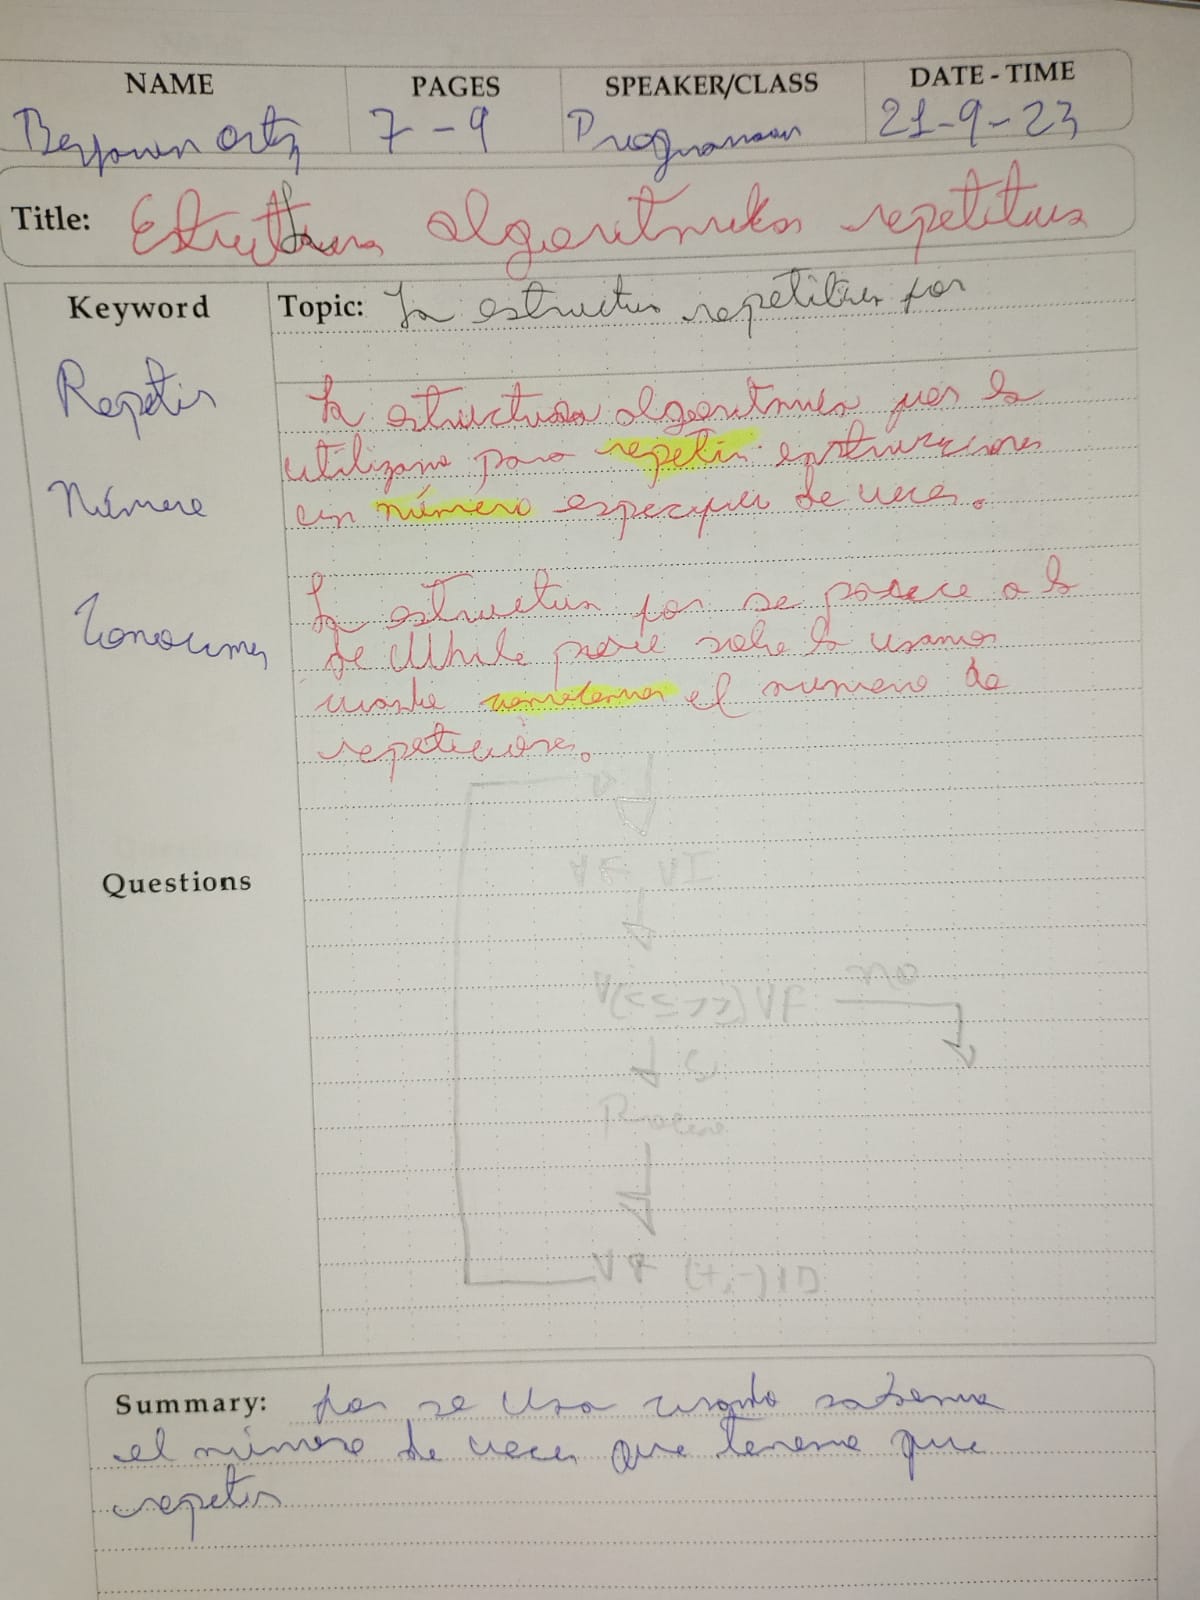 NAME PAGES SPEAKER/CLASS DATE - TIME
7-9 21-9-23
Title: algoritmikas repetitivas
Keyword Topic: La estructura repetitiva for
Repetir
La estructura algoritmica for la
utilizamo para repetir instrucciones
Número
un número especifico de veces.
La estructura for se parece a la
Conocemos
de While pero solo la usamos
cuando conocemos el numero de
repeticiones.
VF VI
no
VF
Si
Proceso
(+,-) ID
Questions
Summary: for se usa cuando sabemo
el número de veces que tenemo que
repetir